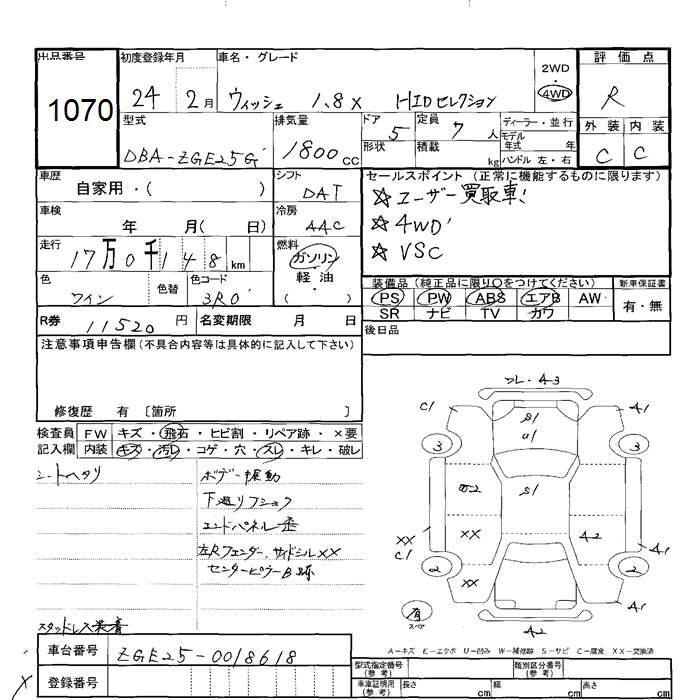 出品番号
1070
初度登録年月
24 2月
車名・グレード
ウィッシュ 1.8X HIDセレクション
2WD
4WD
評価点
R
外装 内装
C C
型式
DBA-ZGE25G
排気量
1800cc
ドア 5
形状
定員 7人
積載 kg
ディーラー・並行
モデル年式 年
ハンドル 左・右
車歴
自家用・( )
シフト
DAT
車検
年 月( 日)
冷房
AAC
走行
17万0千148km
燃料
ガソリン
軽油・
( )
色
ワイン
色替
色コード
3R0
R券 11520円
名変期限 月 日
セールスポイント(正常に機能するものに限ります)
☆ユーザー買取車!
☆4WD
☆VSC
装備品(純正品に限り○をつけてください)
PS PW ABS エアB AW
SR ナビ TV カワ
新車保証書
有・無
後日品
注意事項申告欄(不具合内容等は具体的に記入して下さい)
修復歴 有〔箇所 〕
検査員記入欄
FW キズ・飛石・ヒビ割・リペア跡・×要
内装 キズ・汚レ・コゲ・穴・スレ・キレ・破レ
シートヘタリ
ボデー振動
下廻りフショク
エンドパネル歪
左Rフェンダー、サイドシルXX
センターピラーB跡
スタッドレス装着
車台番号 ZGE25-0018618
X
登録番号
フレ・A3
C1
A1
S1
U1
3
3
S1
XX
XX
C1
A2
A1
2
2
XX
A1
A2
有
スペア
A-キズ E-エクボ U-凹み W-補修跡 S-サビ C-腐食 XX-交換済
型式指定番号(参考)
類別区分番号(参考)
車庫証明用(参考)
長さ cm
幅 cm
高さ cm